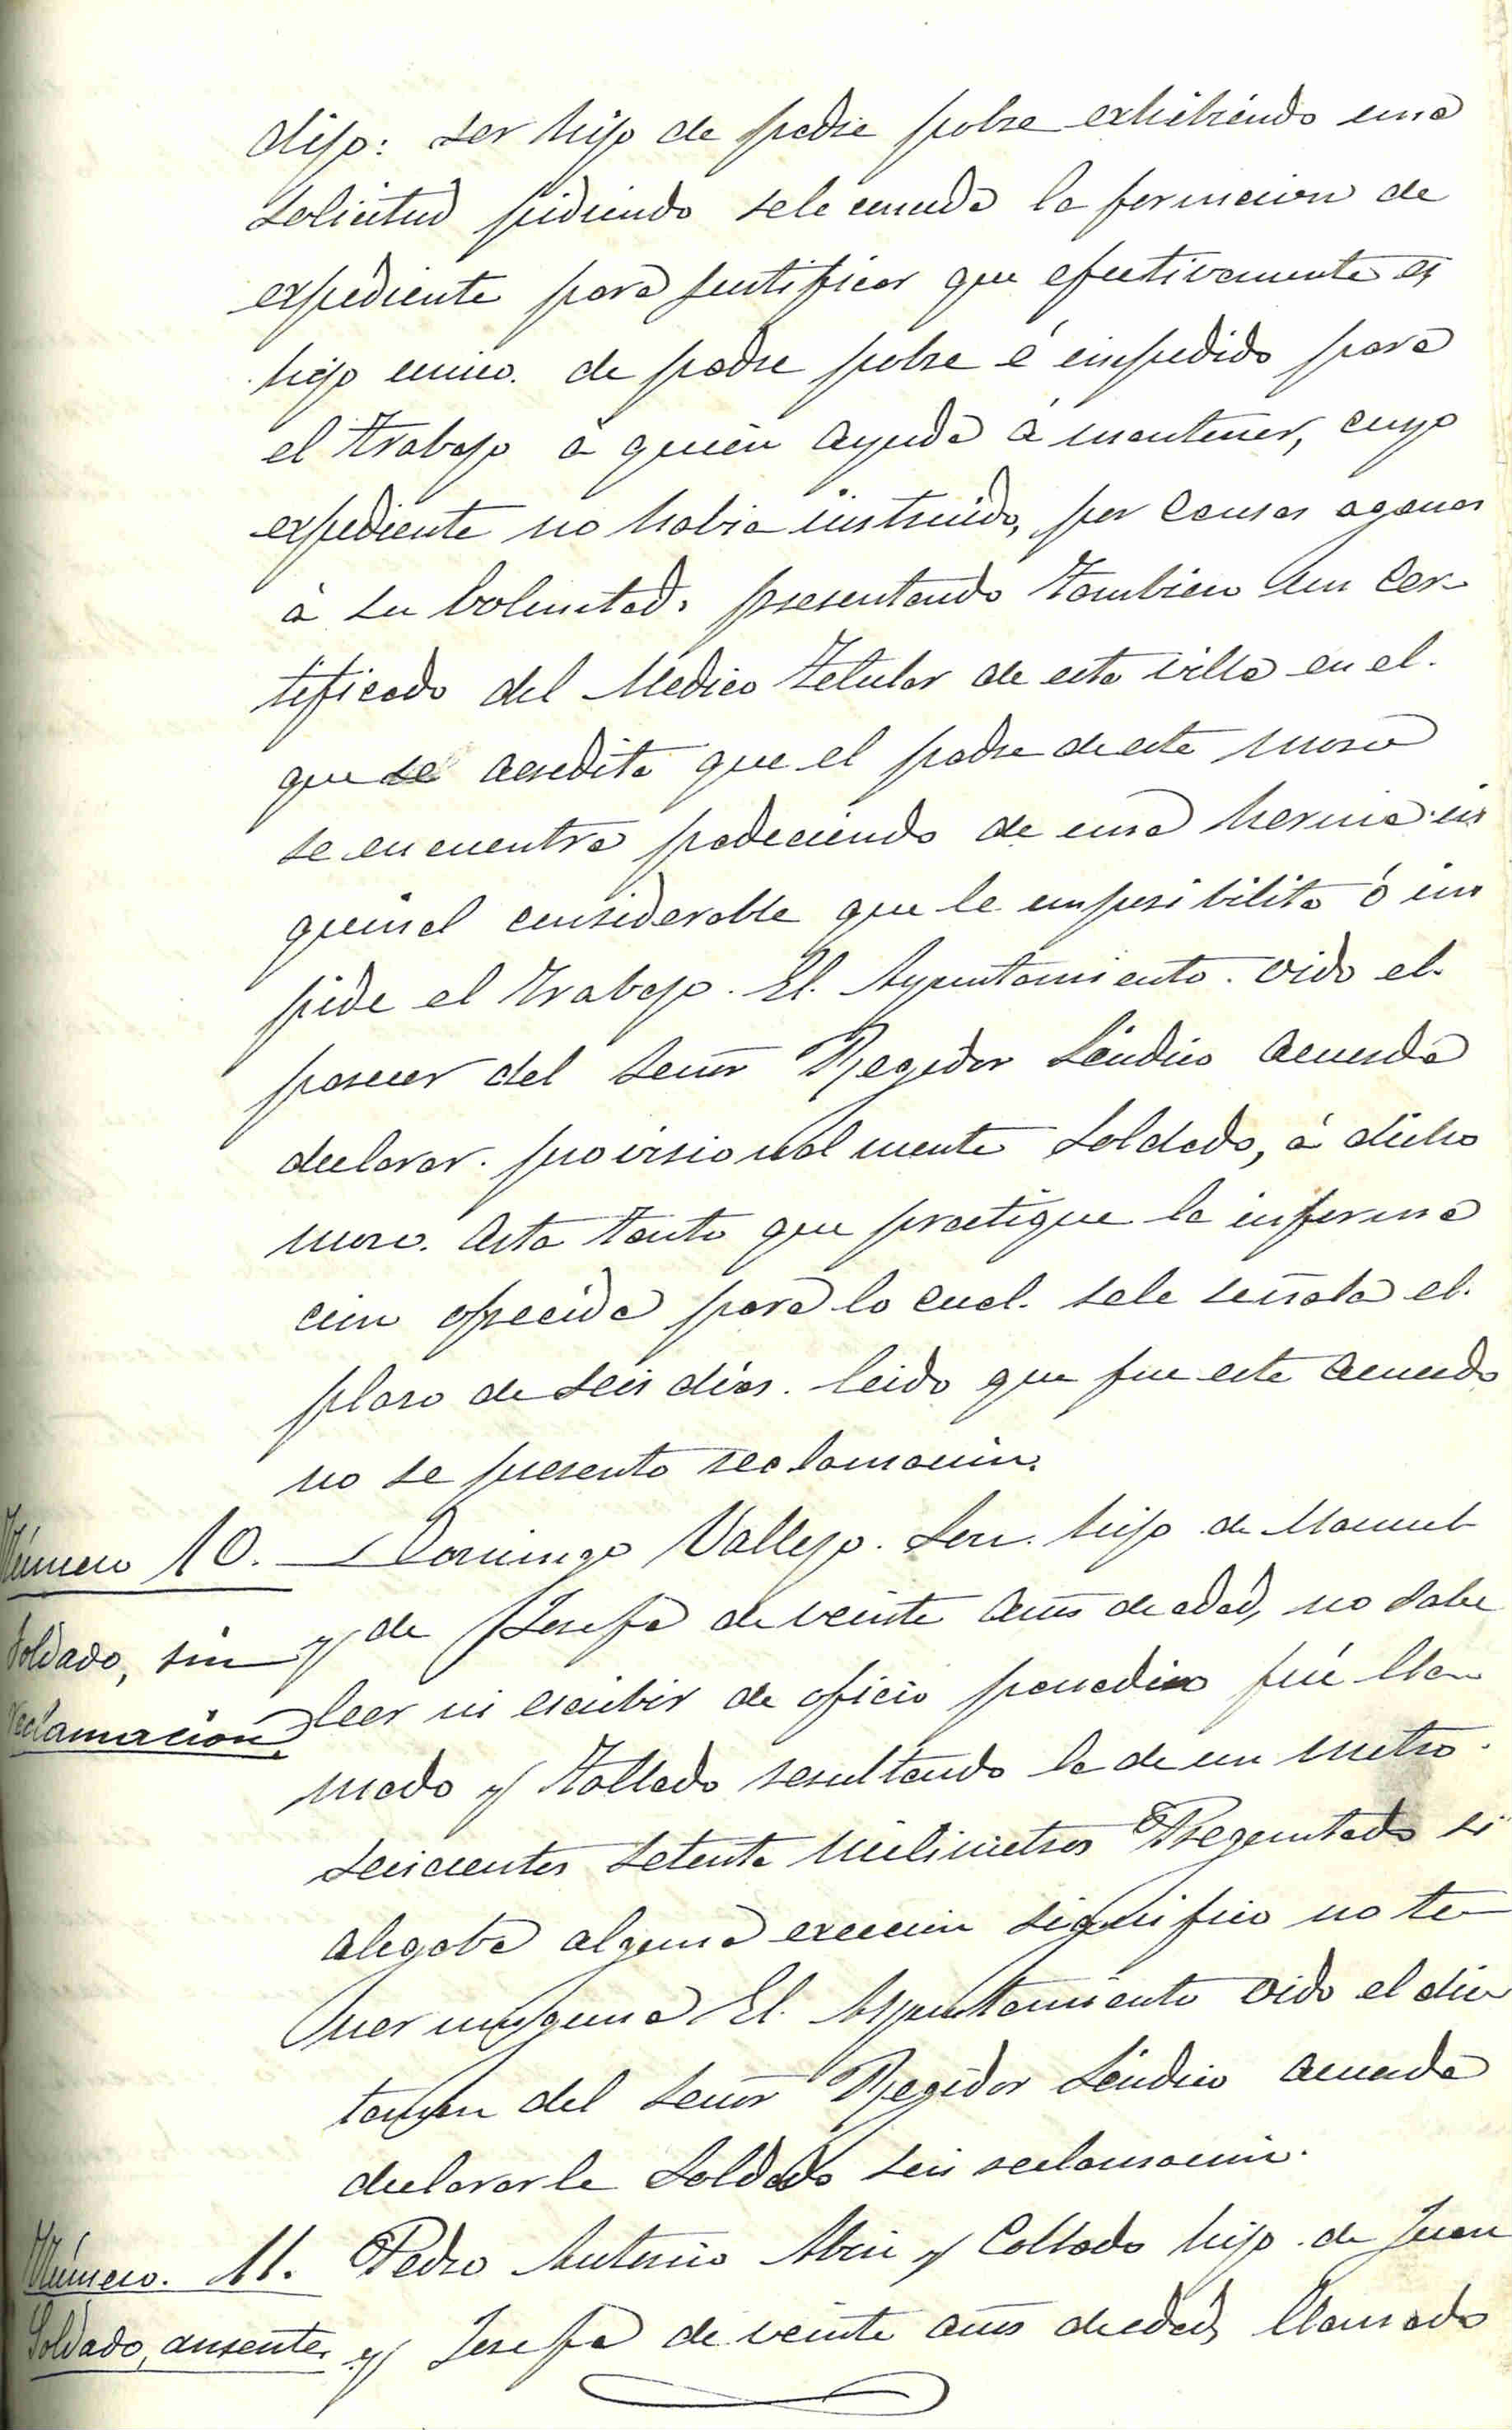 dijo: ser hijo de padre pobre exhibiendo una
solicitud pidiendo sele conceda la formacion de
expediente para justificar que efectivamente es
hijo unico. de padre pobre é impedido para
el trabajo á quien ayuda á mantener, cuyo
expediente no habia instruido, por causas agenas
á su boluntad. presentando tambien un Cer-
tificado del Medico Titular de esta villa en el.
que se acredita que el padre de este moso
se encuentra padeciendo de una hernia in
guinal considerable que le imposibilita ó im
pide el trabajo. El. Ayuntamiento. oido el.
parecer del Señor Regidor Síndico acuerda
declarar. provisionalmente Soldado, á dicho
moso. asta tanto que practique la informa
cion ofrecida para lo cual. sele señala el.
plaso de seis dias. leido que fue este acuerdo
no se presento reclamacion.
Número 10. Domingo Vallejo. Son. hijo de Manuel
Soldado, sin y de Josefa de veinte años de edad, no sabe
reclamacion. leer ni escribir de oficio panadero fué lla
mado y tallado resultando la de un metro.
seiscientos setenta milimetros Preguntado si
alegaba alguna excecion significo no te
ner ninguna El. Ayuntamiento oido el dic
tamen del Señor Regidor Síndico acuerda
declararle Soldado sin reclamacion.
Número. 11. Pedro Antonio y Collado hijo de Juan
Soldado, ausente. y Josefa de veinte años de edad, llamado